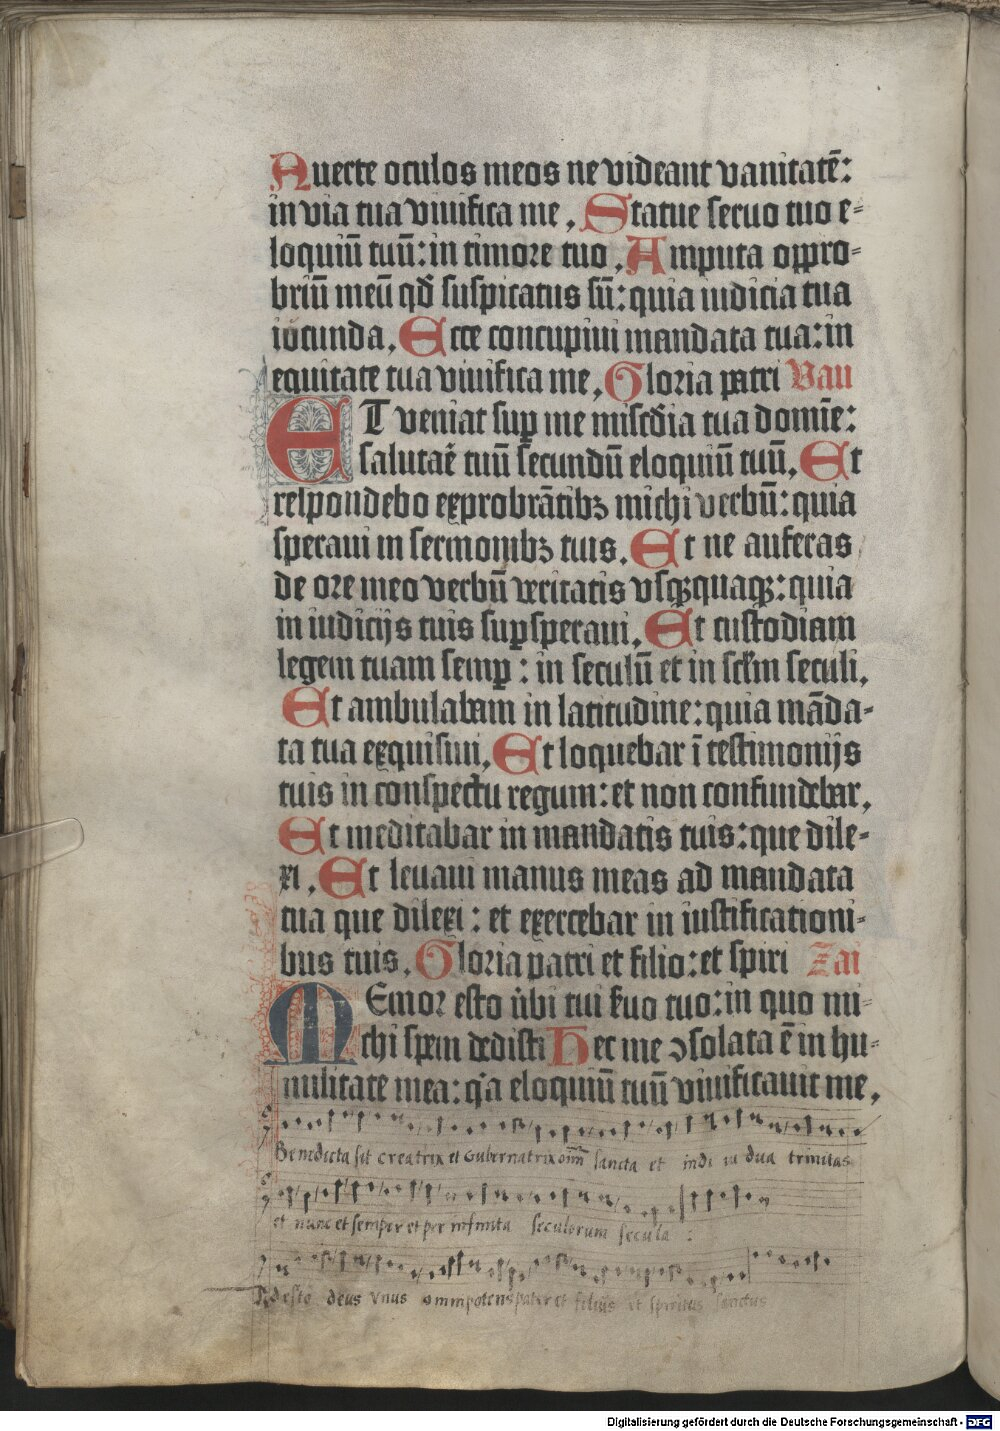 Auerte oculos meos ne videant vanitatē:
in via tua viuifica me, Statue seruo tuo e-
loquiū tuū: in timore tuo, Amputa oppro-
briū meū qđ suspicatus sū: quia iudicia tua
iocunda, Ecce concupiui mandata tua: in
equitate tua viuifica me, Gloria patri Vau
ET veniat suꝑ me miscđia tua domīe:
salutaē tuū secundū eloquiū tuū, Et
respondebo exprobrātibꝫ michi verbū: quia
speraui in sermonibꝫ tuis. Et ne auferas
de ore meo verbū veritatis vsqꝫquaqꝫ: quia
in iudicijs tuis suꝑsperaui, Et custodiam
legem tuam semꝑ: in seculū et in sclm seculi,
Et ambulabam in latitudine: quia māda-
ta tua exquisiui, Et loquebar ī testimonijs
tuis in conspectu regum: et non confundebar,
Et meditabar in mandatis tuis: que dile-
xi, Et leuaui manus meas ad mandata
tua que dilexi: et exercebar in iustificationi-
bus tuis, Gloria patri et filio: et spiri Zai
MEmor esto ubi tui suo tuo: in quo mi-
chi spem dedisti Hec me ↄsolata ē in hu-
militate mea: qa eloquiū tuū viuificauit me,
Benedicta sit creatrix et Gubernatrix om̄ sancta et indi ui dua trinitas
et nunc et semper et per infinita seculorum secula:
Adesto deus vnus omnipotens pater et filius et spiritus sanctus
Digitalisierung gefördert durch die Deutsche Forschungsgemeinschaft - DFG